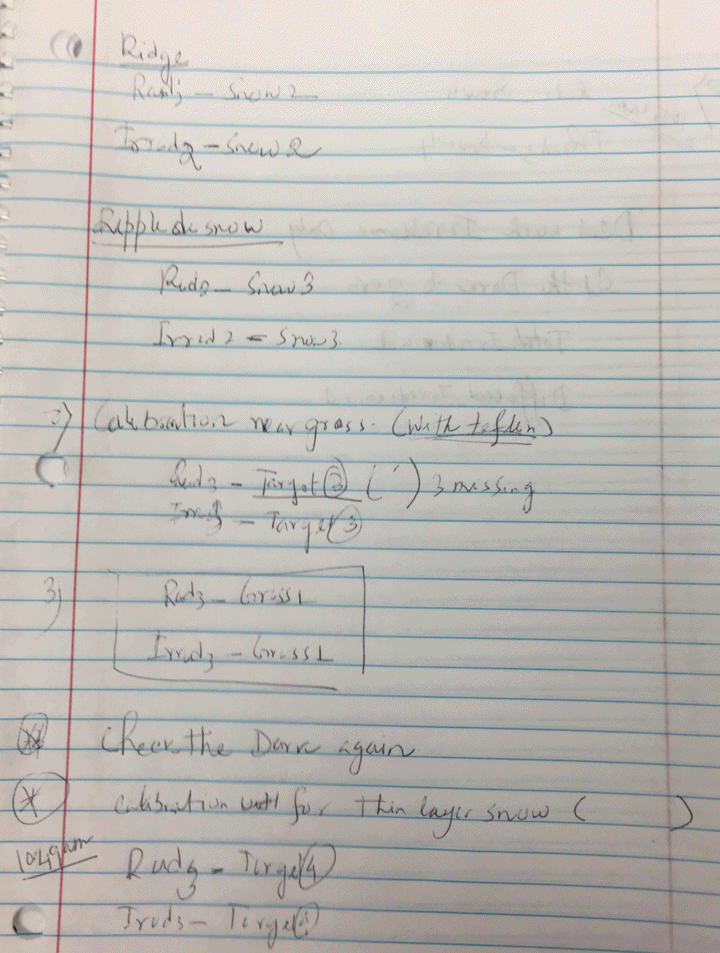 Ridge
Rad3 - Snow 2
Irrad2 - Snow 2
Ripple de snow
Rad2 - Snow 3
Irrad 2 - Snow 3
2) Calibration near grass. (with teflon)
Rad3 - Target 3 ( ) 3 missing
Irrad3 - Target 3
3) Rad3 - Grass 1
Irrad3 - Grass 1
* Check the Dark again
* calibration for thin layer snow ( )
10:49am Rad3 - Target 4
Irad3 - Target